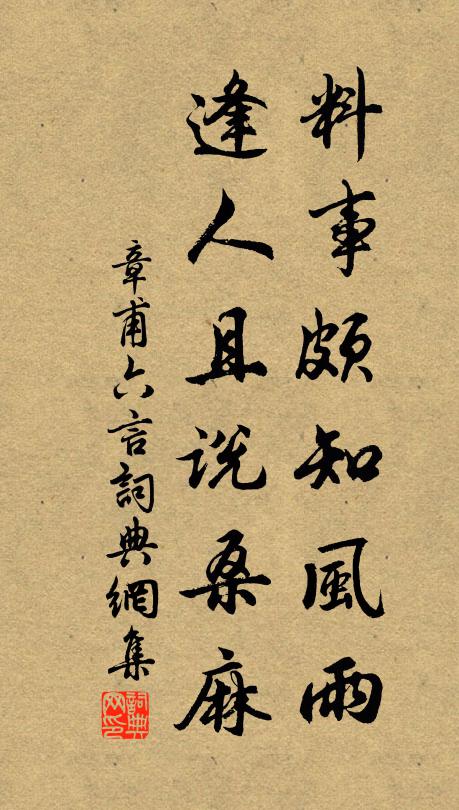 料事頗知風雨
逢人且説桑麻
章甫六言詞典網集
詞典网印